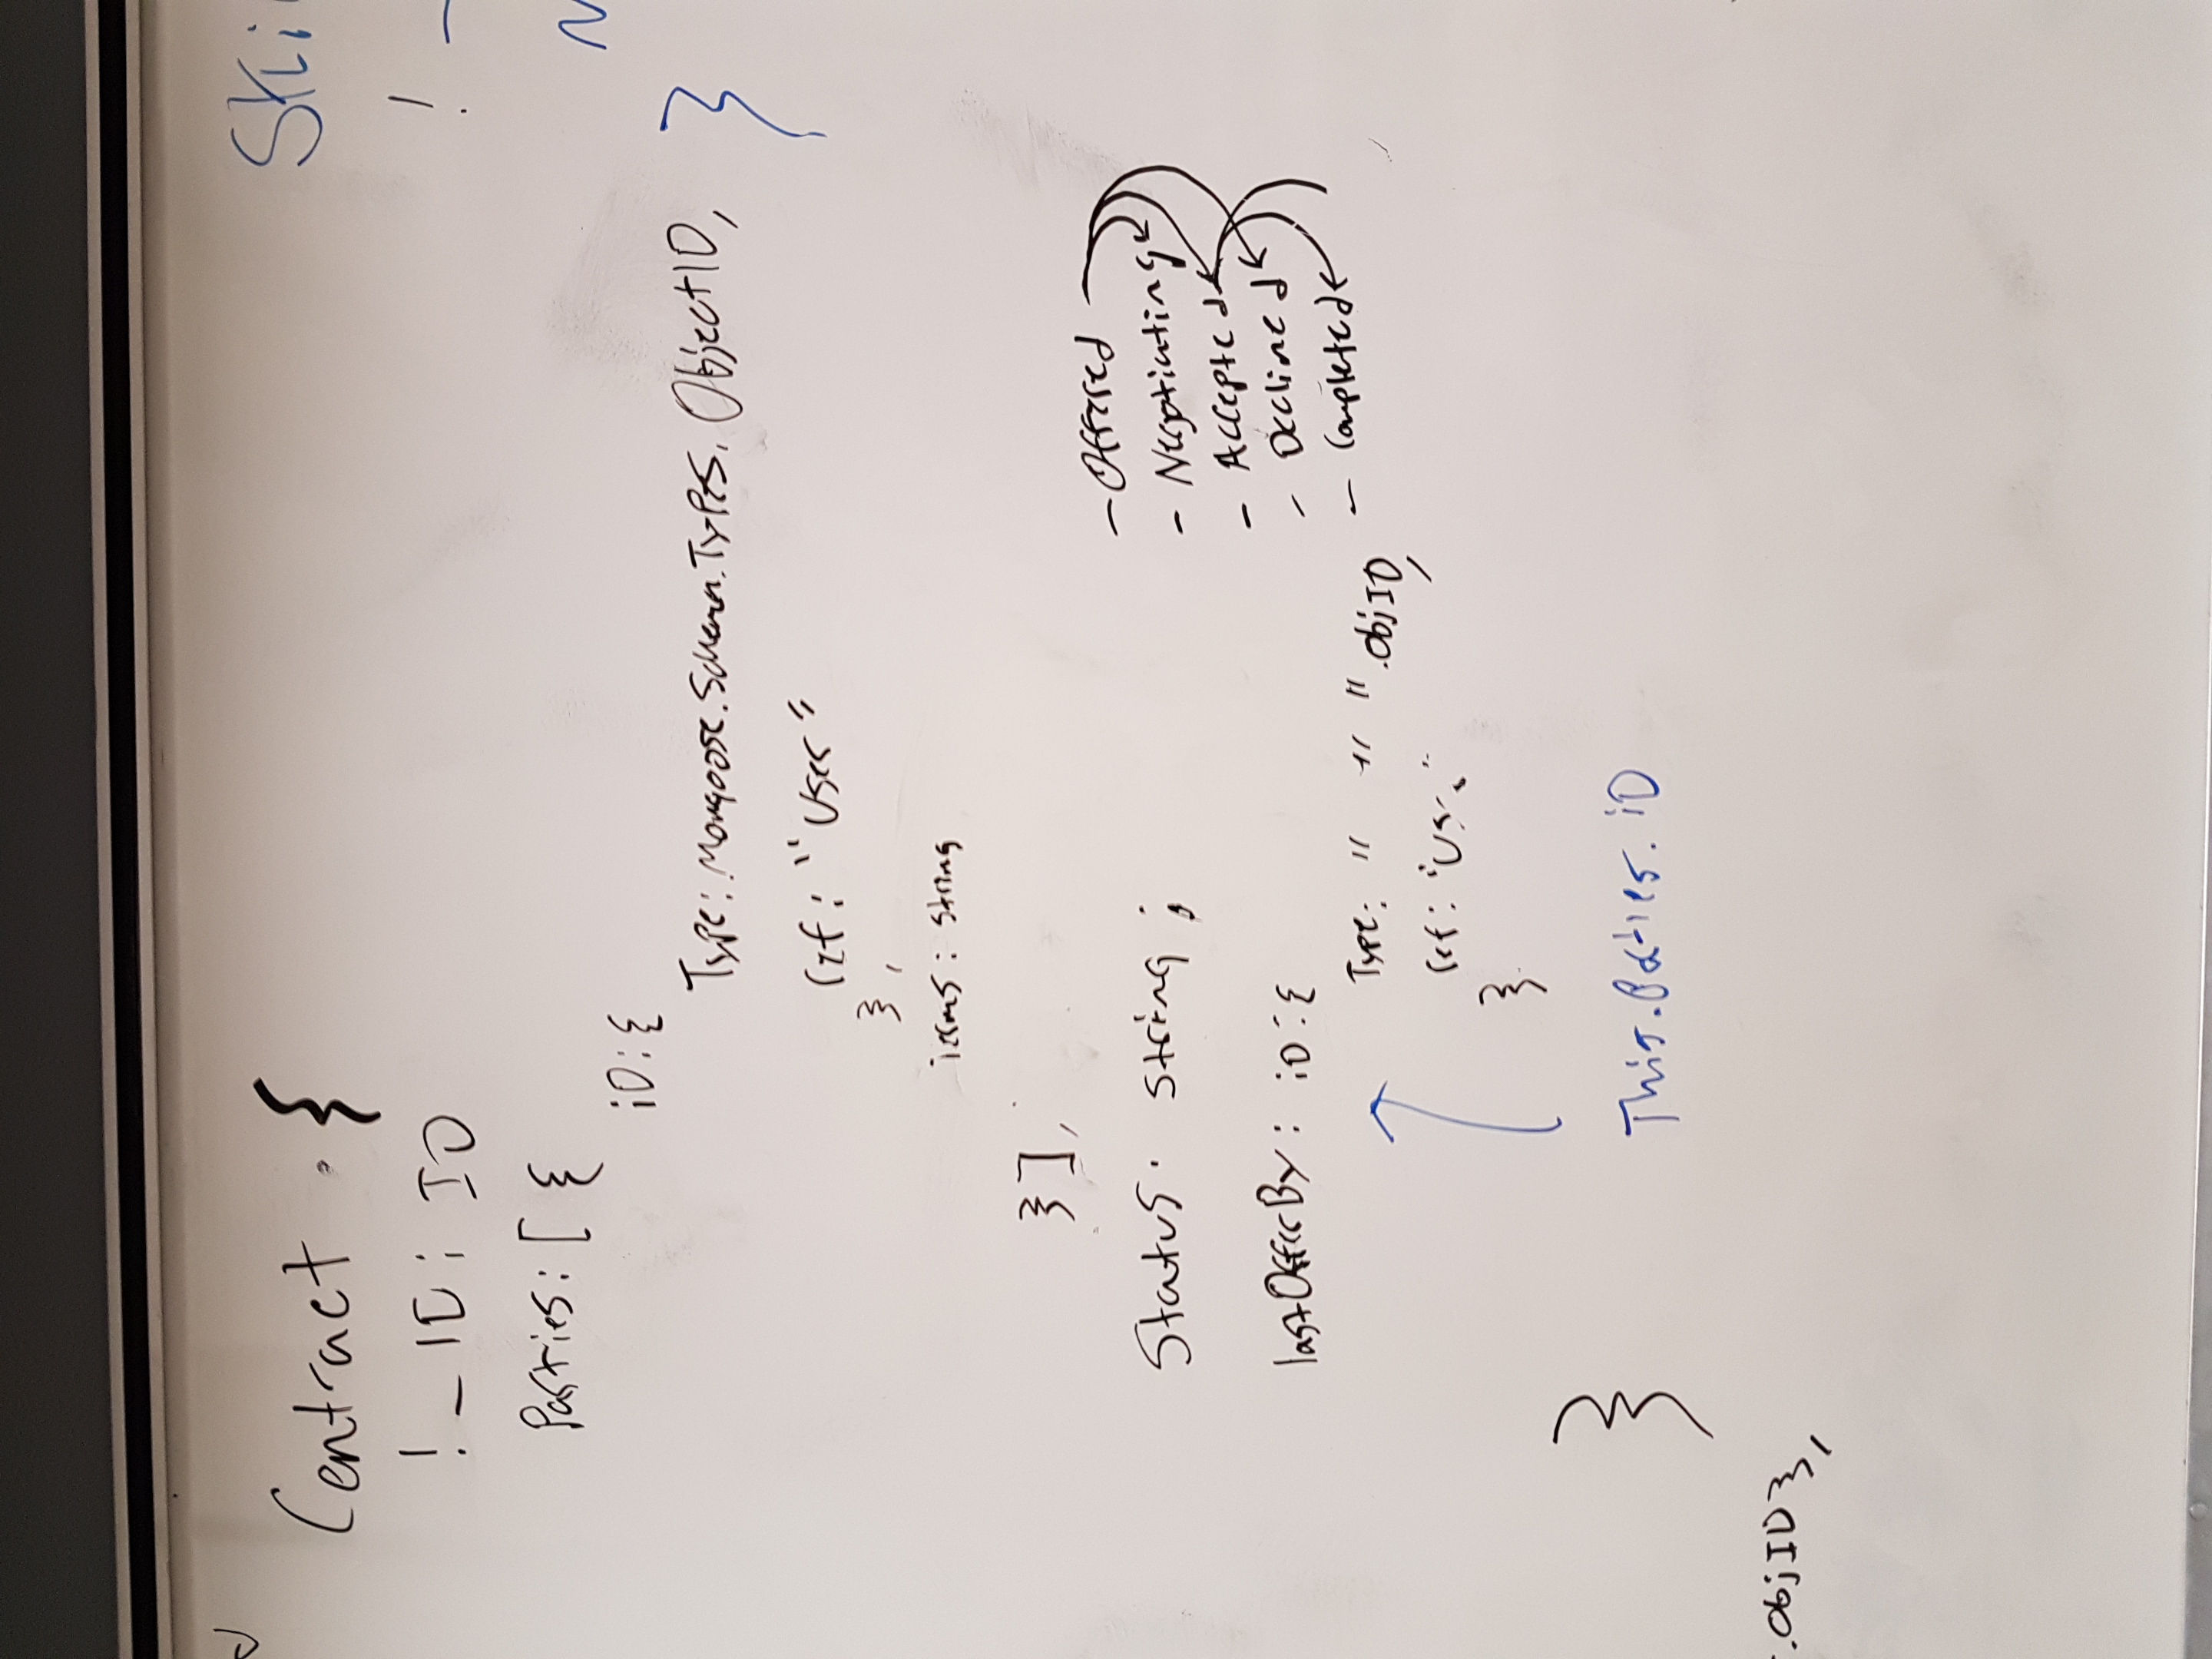 Contract : {
! _ ID : ID
Parties: [ {
iD: {
Type: Mongoose.Schema.Types.ObjectID,
ref: "User"
} ,
items: string
} ] ,
Status: string ;
lastOfferBy: iD: {
Type: " " ".objID,
ref: "User"
}
This.Parties.iD
}
.objID},
- Offered
- Negotiating
- Accepted
- Declined
- Completed
!
}